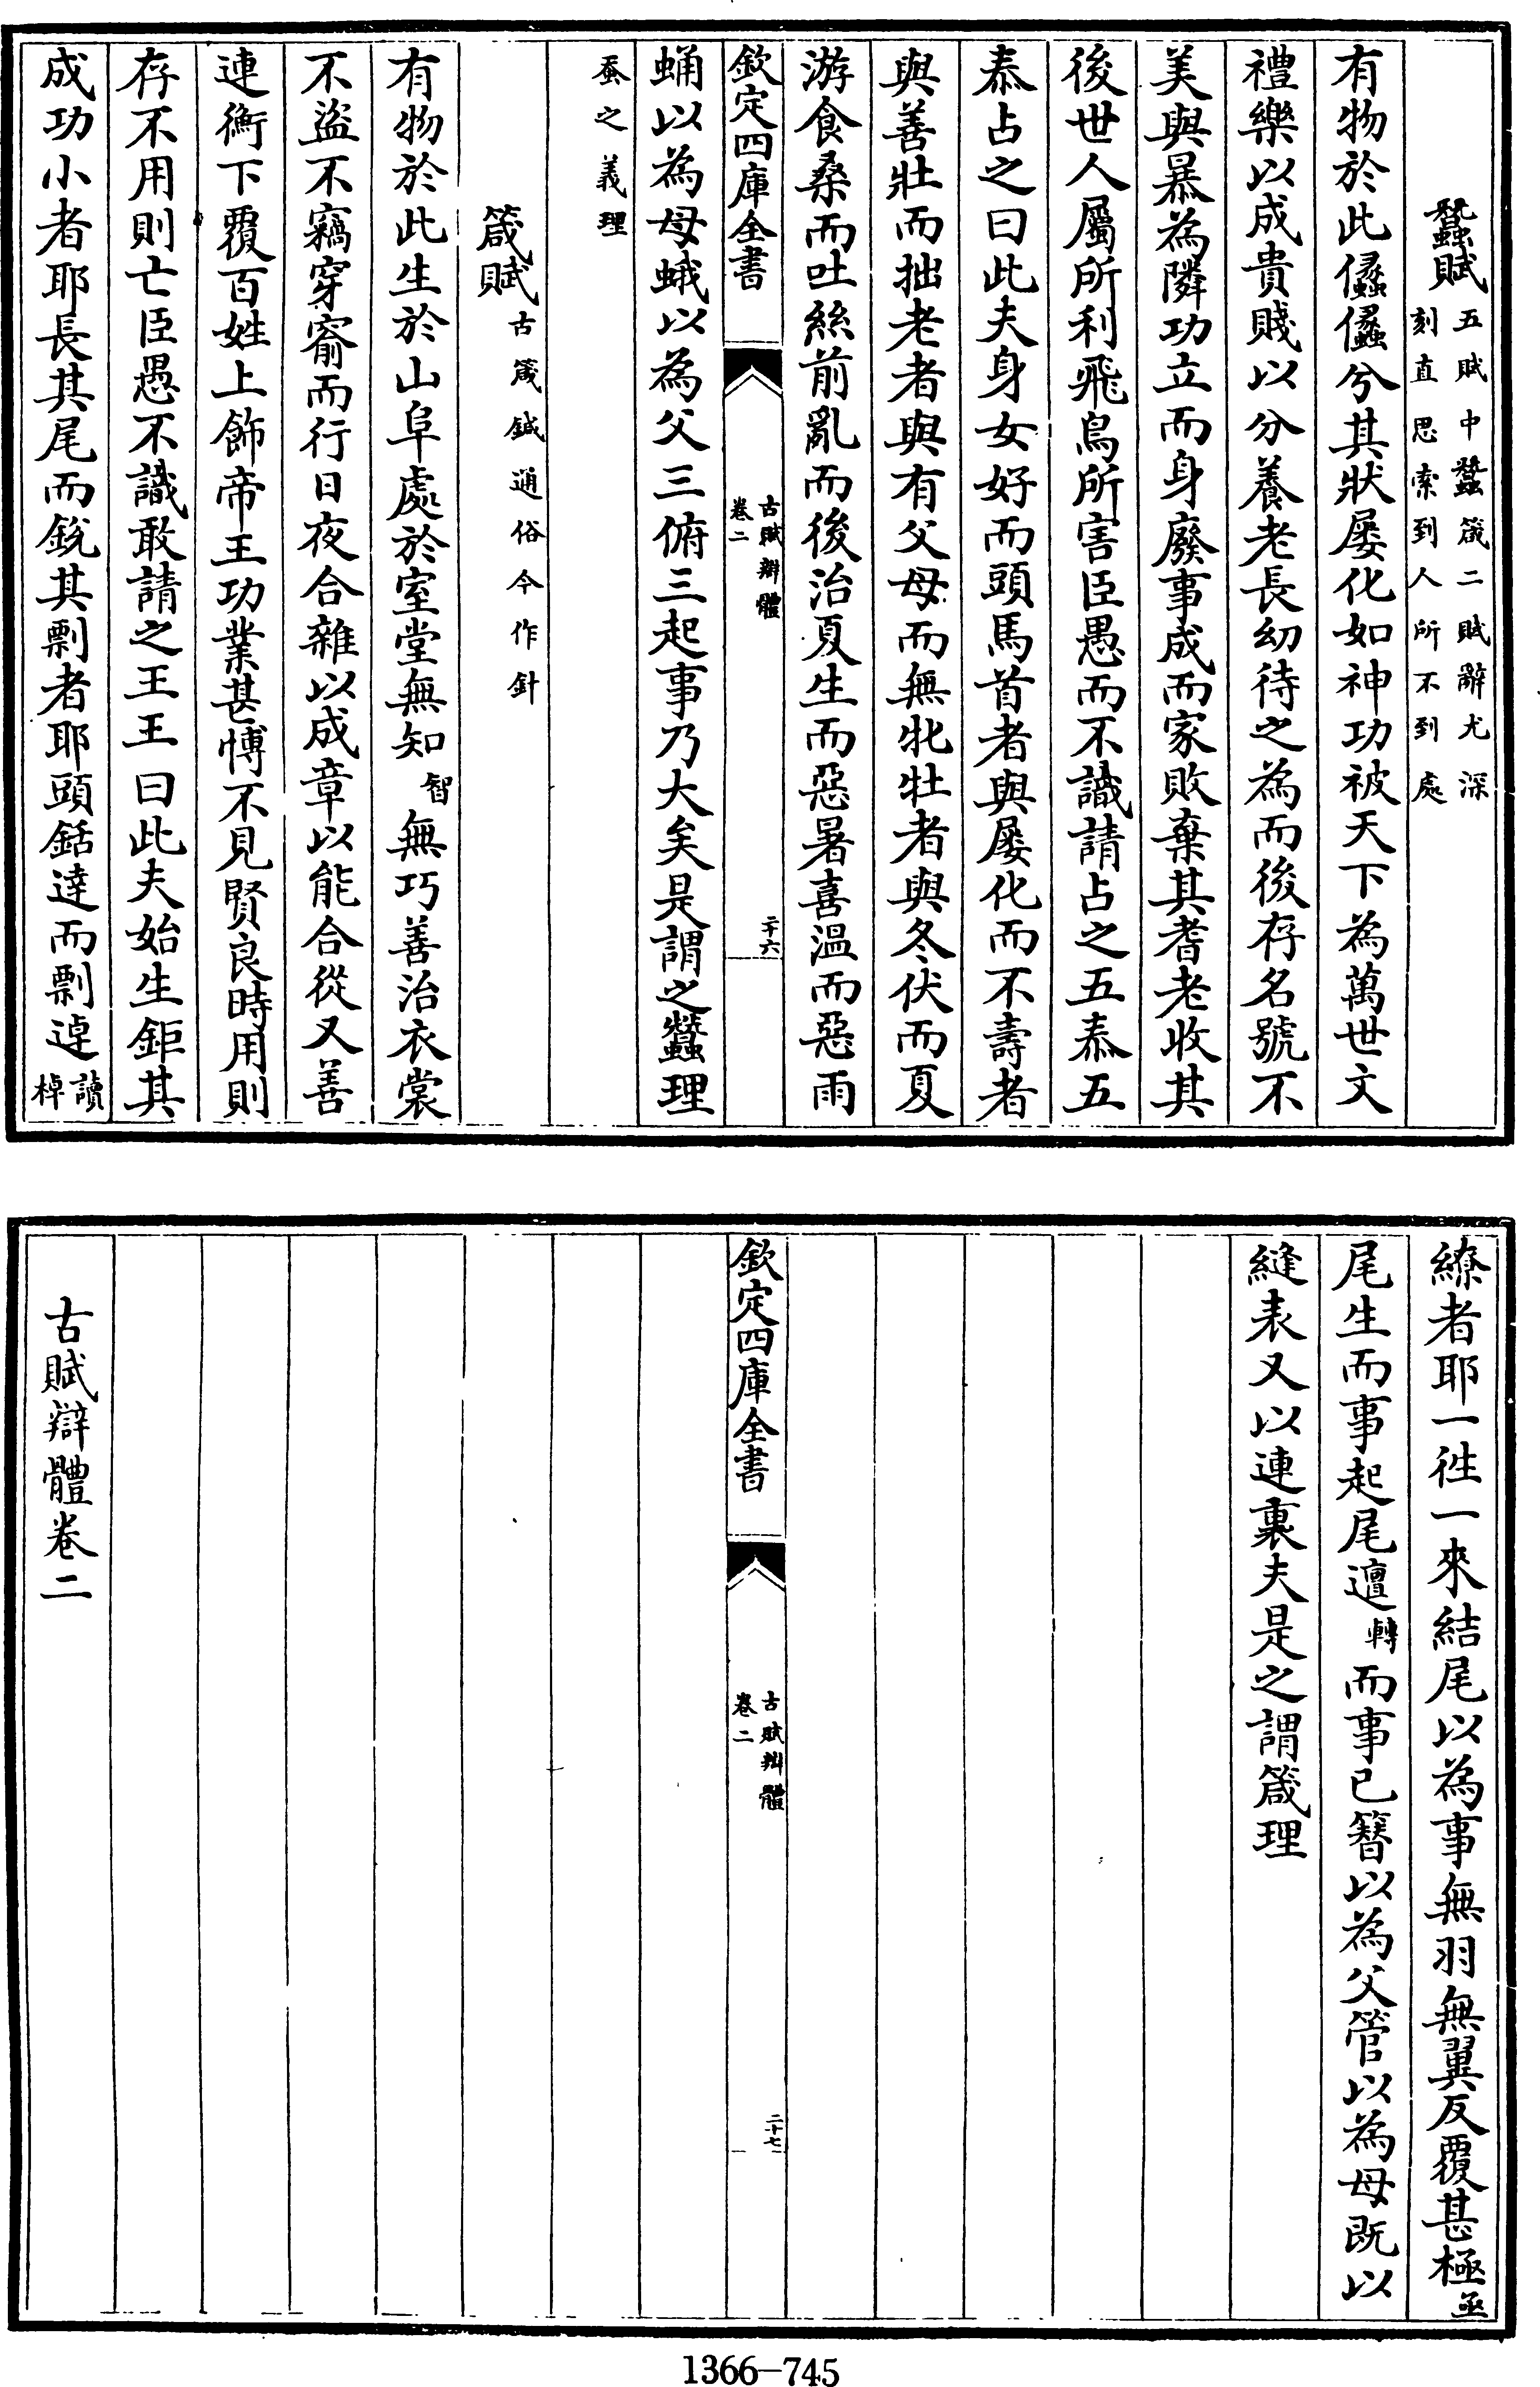 蠶賦五賦中蠶箴二賦辭尤深
刻直思索到人所不到處
有物於此儽儽兮其狀屡化如神功被天下為萬世文
禮樂以成貴賤以分養老長幼待之為而後存名號不
美與暴為隣功立而身廢事成而家敗棄其耆老收其
後世人屬所利飛鳥所害臣愚而不識請占之五泰五
泰占之曰此夫身女好而頭馬首者與屡化而不壽者
與善壯而拙老者與有父母而無牝牡者與冬伏而夏
游食桑而吐絲前亂而後治夏生而惡暑喜溫而惡雨
欽定四庫全書
古賦辯體
卷二
二十六
蛹以為母蛾以為父三俯三起事乃大矣是謂之蠶理
蚕之義理
箴賦古箴鍼通俗今作針
有物於此生於山阜處於室堂無知智無巧善治衣裳
不盜不竊穿窬而行日夜合離以成章以能合從又善
連衡下覆百姓上飾帝王功業甚博不見賢良時用則
存不用則亡臣愚不識敢請之王王曰此夫始生鉅其
成功小者耶長其尾而銳其剽者耶頭銛達而剽趠讀
棹
繚者耶一徃一來結尾以為事無羽無翼反覆甚極亟
尾生而事起尾邅轉而事已簪以為父管以為母既以
縫表又以連裏夫是之謂箴理
欽定四庫全書
古賦辯體
卷二
二十七
古賦辯體卷二
1366-745